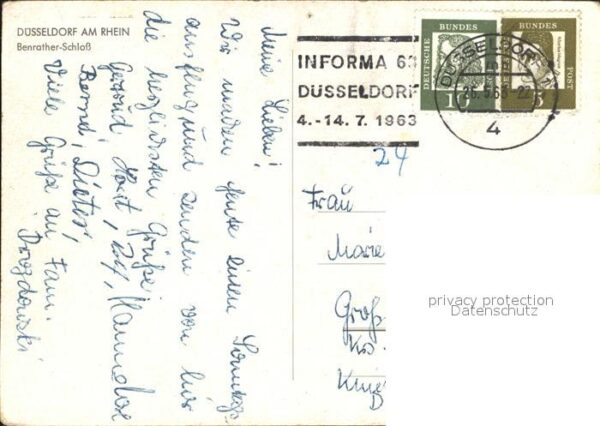 DÜSSELDORF AM RHEIN
Benrather-Schloß
Meine Lieben!
Wir machen heute einen Sonntags-
ausflug und senden von hier
die herzlichsten Grüße.
Gertrud, Horst, Hannelore
Bernd, Dieter,
Viele Grüße an Fam.
Drozdowski
INFORMA 63
DÜSSELDORF
4.-14. 7. 1963
DEUTSCHE BUNDES
10
BUNDES POST
5
DÜSSELDORF
26.5.63-22
4
24
Frau
Marie
Groß
Krs
privacy protection
Datenschutz